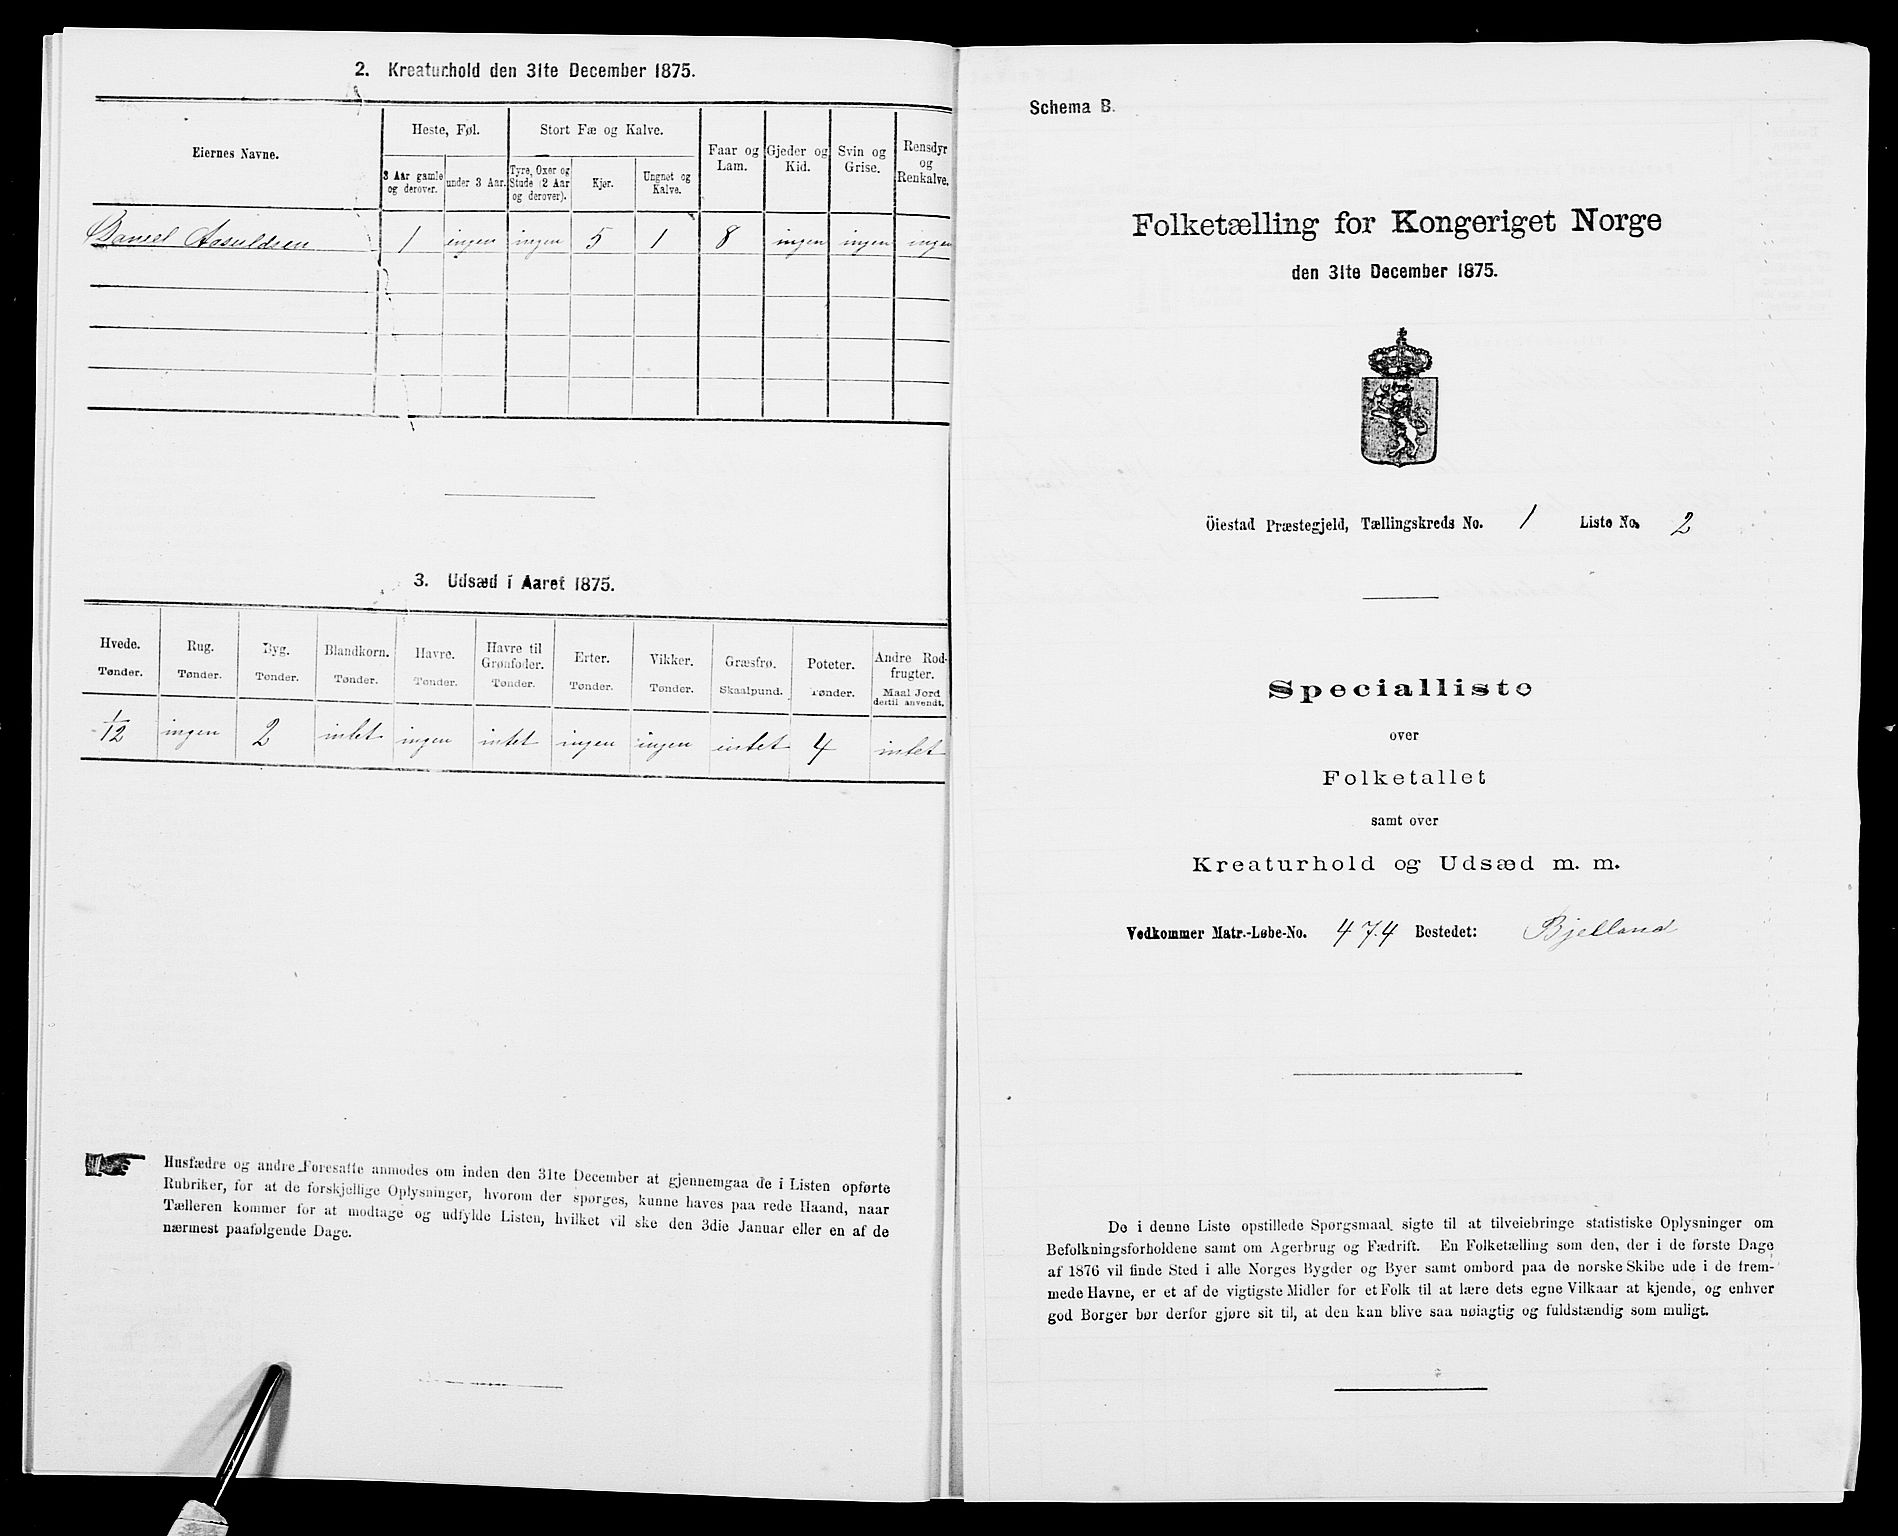 2. Kreaturhold den 31te December 1875.
Eiernes Navne.
Heste, Føl.
Stort Fæ og Kalve.
Faar og Lam.
Gjeder og Kid.
Svin og Grise.
Rensdyr og Renkalve.
3 Aar gamle og derover.
under 3 Aar.
Tyre, Oxer og Stude (2 Aar og derover).
Kjør.
Ungnet og Kalve.
Daniel Aasuldsen 1 ingen ingen 5 1 8 ingen ingen ingen
3. Udsæd i Aaret 1875.
Hvede. Tønder.
Rug. Tønder.
Byg. Tønder.
Blandkorn. Tønder.
Havre. Tønder.
Havre til Grønfoder. Tønder.
Erter. Tønder.
Vikker. Tønder.
Græsfrø. Skaalpund.
Poteter. Tønder.
Andre Rodfrugter. Maal Jord dertil anvendt.
1/12 ingen 2 intet ingen intet ingen ingen intet 4 intet
Husfædre og andre Foresatte anmodes om inden den 31te December at gjennemgaa de i Listen opførte
Rubriker, for at de forskjellige Oplysninger, hvorom der spørges, kunne haves paa rede Haand, naar
Tælleren kommer for at modtage og udfylde Listen, hvilket vil ske den 3die Januar eller en af de
nærmest paafølgende Dage.
Schema B.
Folketælling for Kongeriget Norge
den 31te December 1875.
Öiestad Præstegjeld, Tællingskreds No. 1 Liste No. 2
Specialliste
over
Folketallet
samt over
Kreaturhold og Udsæd m. m.
Vedkommer Matr.-Løbe-No. 474 Bostedet: Bjelland
De i denne Liste opstillede Spørgsmaal sigte til at tilveiebringe statistiske Oplysninger om
Befolkningsforholdene samt om Agerbrug og Fædrift. En Folketælling som den, der i de første Dage
af 1876 vil finde Sted i alle Norges Bygder og Byer samt ombord paa de norske Skibe ude i de frem-
mede Havne, er et af de vigtigste Midler for et Folk til at lære dets egne Vilkaar at kjende, og enhver
god Borger bør derfor gjøre sit til, at den kan blive saa nøiagtig og fuldstændig som muligt.